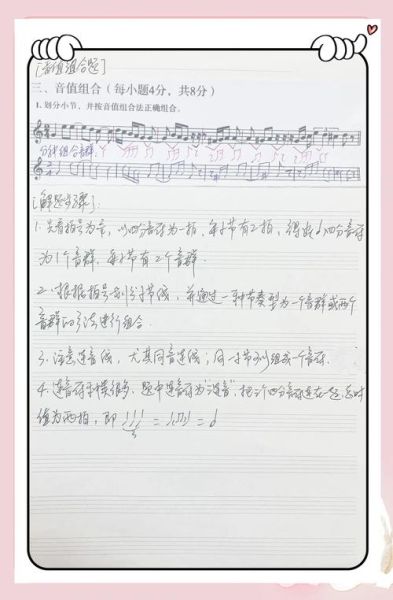 [音值组合题]
三、音值组合(每小题4分,共8分)
1. 划分小节,并按音值组合法正确组合。
分钟组合音群:
[解题步骤]:
1. 先看拍号为 以四分音符为一拍,每小节有2拍,得 四分音符
为1个音群,每小节有2个音群.
2. 根据拍号划分小节线,并通过一种节奏型为一个音群或两个
音群的方法进行组合.
3. 注意连音线,尤其同音连线;同小节 组成一个音符.
4. 连音符 很多,题中连音符为"三连音",把三个四分音符连在一起,总时
值为两拍,即